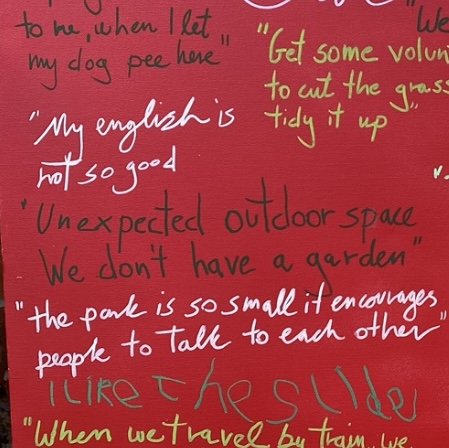 to me, when I let
my dog pee here"
"We
"Get some volun
to cut the grass
tidy it up"
"My english is
not so good
"Unexpected outdoor space
We don't have a garden"
"the park is so small it encourages
people to talk to each other"
I LIKE The Slide
"When we travel by train, we